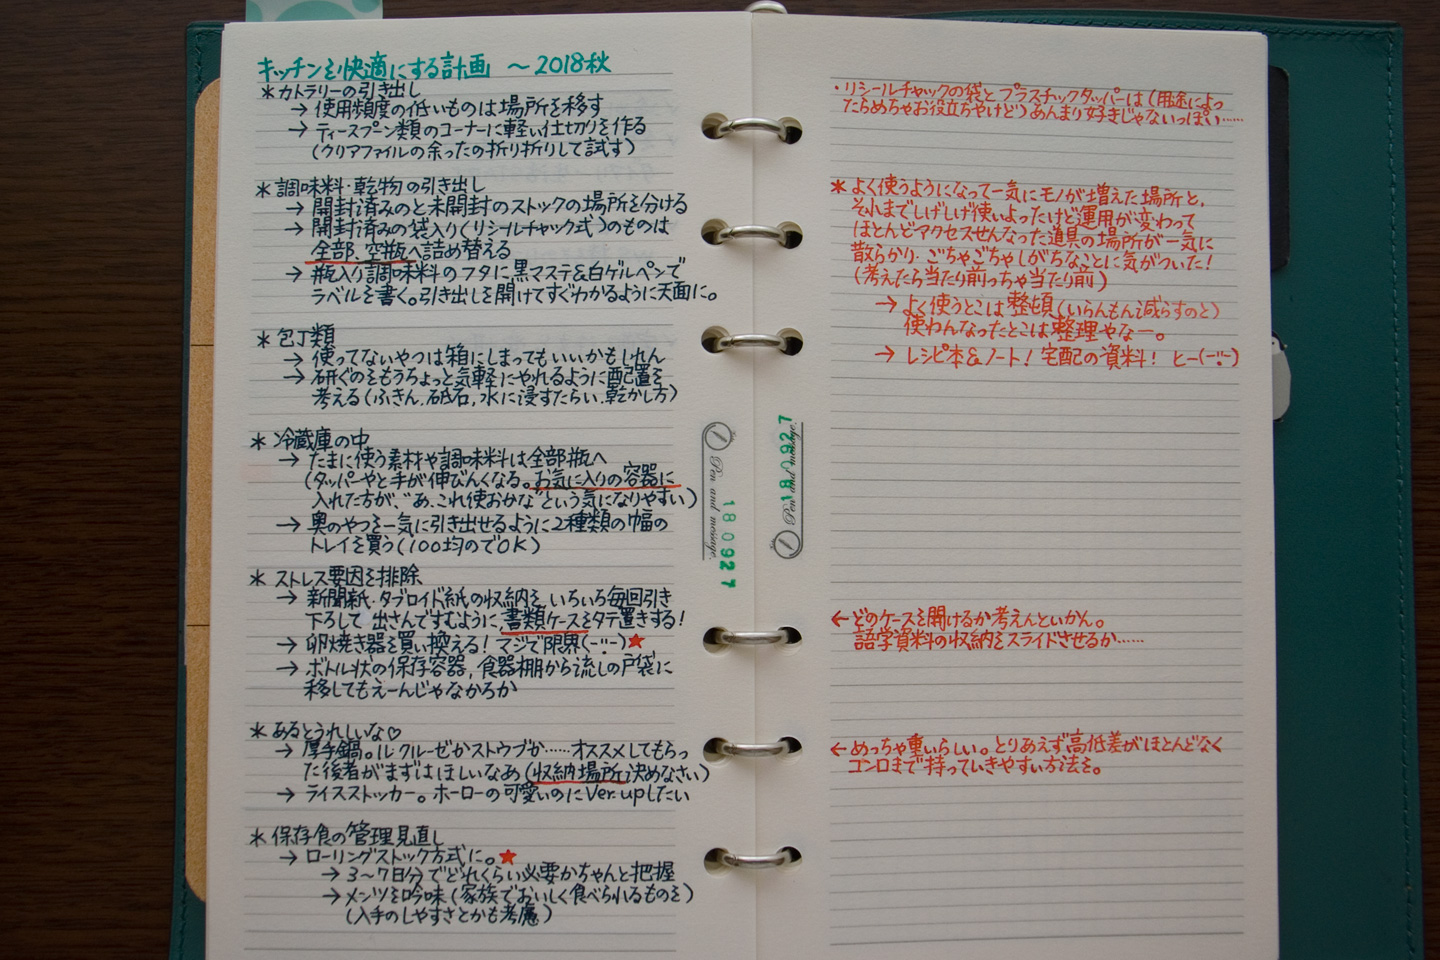 キッチンを快適にする計画 〜2018秋
＊カトラリーの引き出し
→ 使用頻度の低いものは場所を移す
→ ティースプーン類のコーナーに軽い仕切りを作る
(クリアファイルの余ったの折り折りして試す)
＊調味料・乾物の引き出し
→ 開封済みのと未開封のストックの場所を分ける
→ 開封済みの袋入り(リシールチャック式)のものは
全部、空瓶へ詰め替える
→ 瓶入り調味料のフタに黒マステ&白ゲルペンで
ラベルを書く。引き出しを開けてすぐわかるように天面に。
＊包丁類
→ 使ってないやつは箱にしまってもいいかもしれん
→ 研ぐのをもうちょっと気軽にやれるように配置を
考える(ふきん、砥石、水に浸すたらい、乾かし方)
＊冷蔵庫の中
→ たまに使う素材や調味料は全部瓶へ
(タッパーやと手が伸びんくなる。お気に入りの容器に
入れた方が、“あ、これ使おかな”という気になりやすい)
→ 奥のやつを一気に引き出せるように2種類の幅の
トレイを買う(100均のでOK)
＊ストレス要因を排除
→ 新聞紙・タブロイド紙の収納を、いちいち毎回引き
下ろして出さんですむように、書類ケースをタテ置きする!
→ 卵焼き器を買い換える! マジで限界(-"-)★
→ ボトル状の保存容器、食器棚から流しの戸袋に
移してもえーんじゃなかろか
＊あるとうれしいな♡
→ 厚手鍋。ル・クルーゼかストウブか……オススメしてもらっ
た後者がまずはほしいなあ(収納場所決めなさい)
→ ライスストッカー。ホーローの可愛いのにVer.upしたい
＊保存食の管理見直し
→ ローリングストック方式に。★
→ 3〜7日分でどれくらい必要かちゃんと把握
→ メンツを吟味(家族でおいしく食べられるものを)
(入手のしやすさとかも考慮)
Pen and message.
180927
・リシールチャックの袋とプラスチックタッパーは(用途によっ
たらめちゃお役立ちやけど)あんまり好きじゃないっぽい……
＊よく使うようになって一気にモノが増えた場所と、
それまでしげしげ使いよったけど運用が変わって
ほとんどアクセスせんなった道具の場所が一気に
散らかり・ごちゃごちゃしがちなことに気がついた!
(考えたら当たり前っちゃ当たり前)
→ よく使うとこは整頓(いらんもん減らすのと)
使わんなったとこは整理やなー。
→ レシピ本&ノート! 宅配の資料! とー(-"-)
180927
Pen and message.
←どのケースを開けるか考えんといかん。
語学資料の収納をスライドさせるか……
←めっちゃ重いらしい。とりあえず高低差がほとんどなく
コンロまで持っていきやすい方法を。